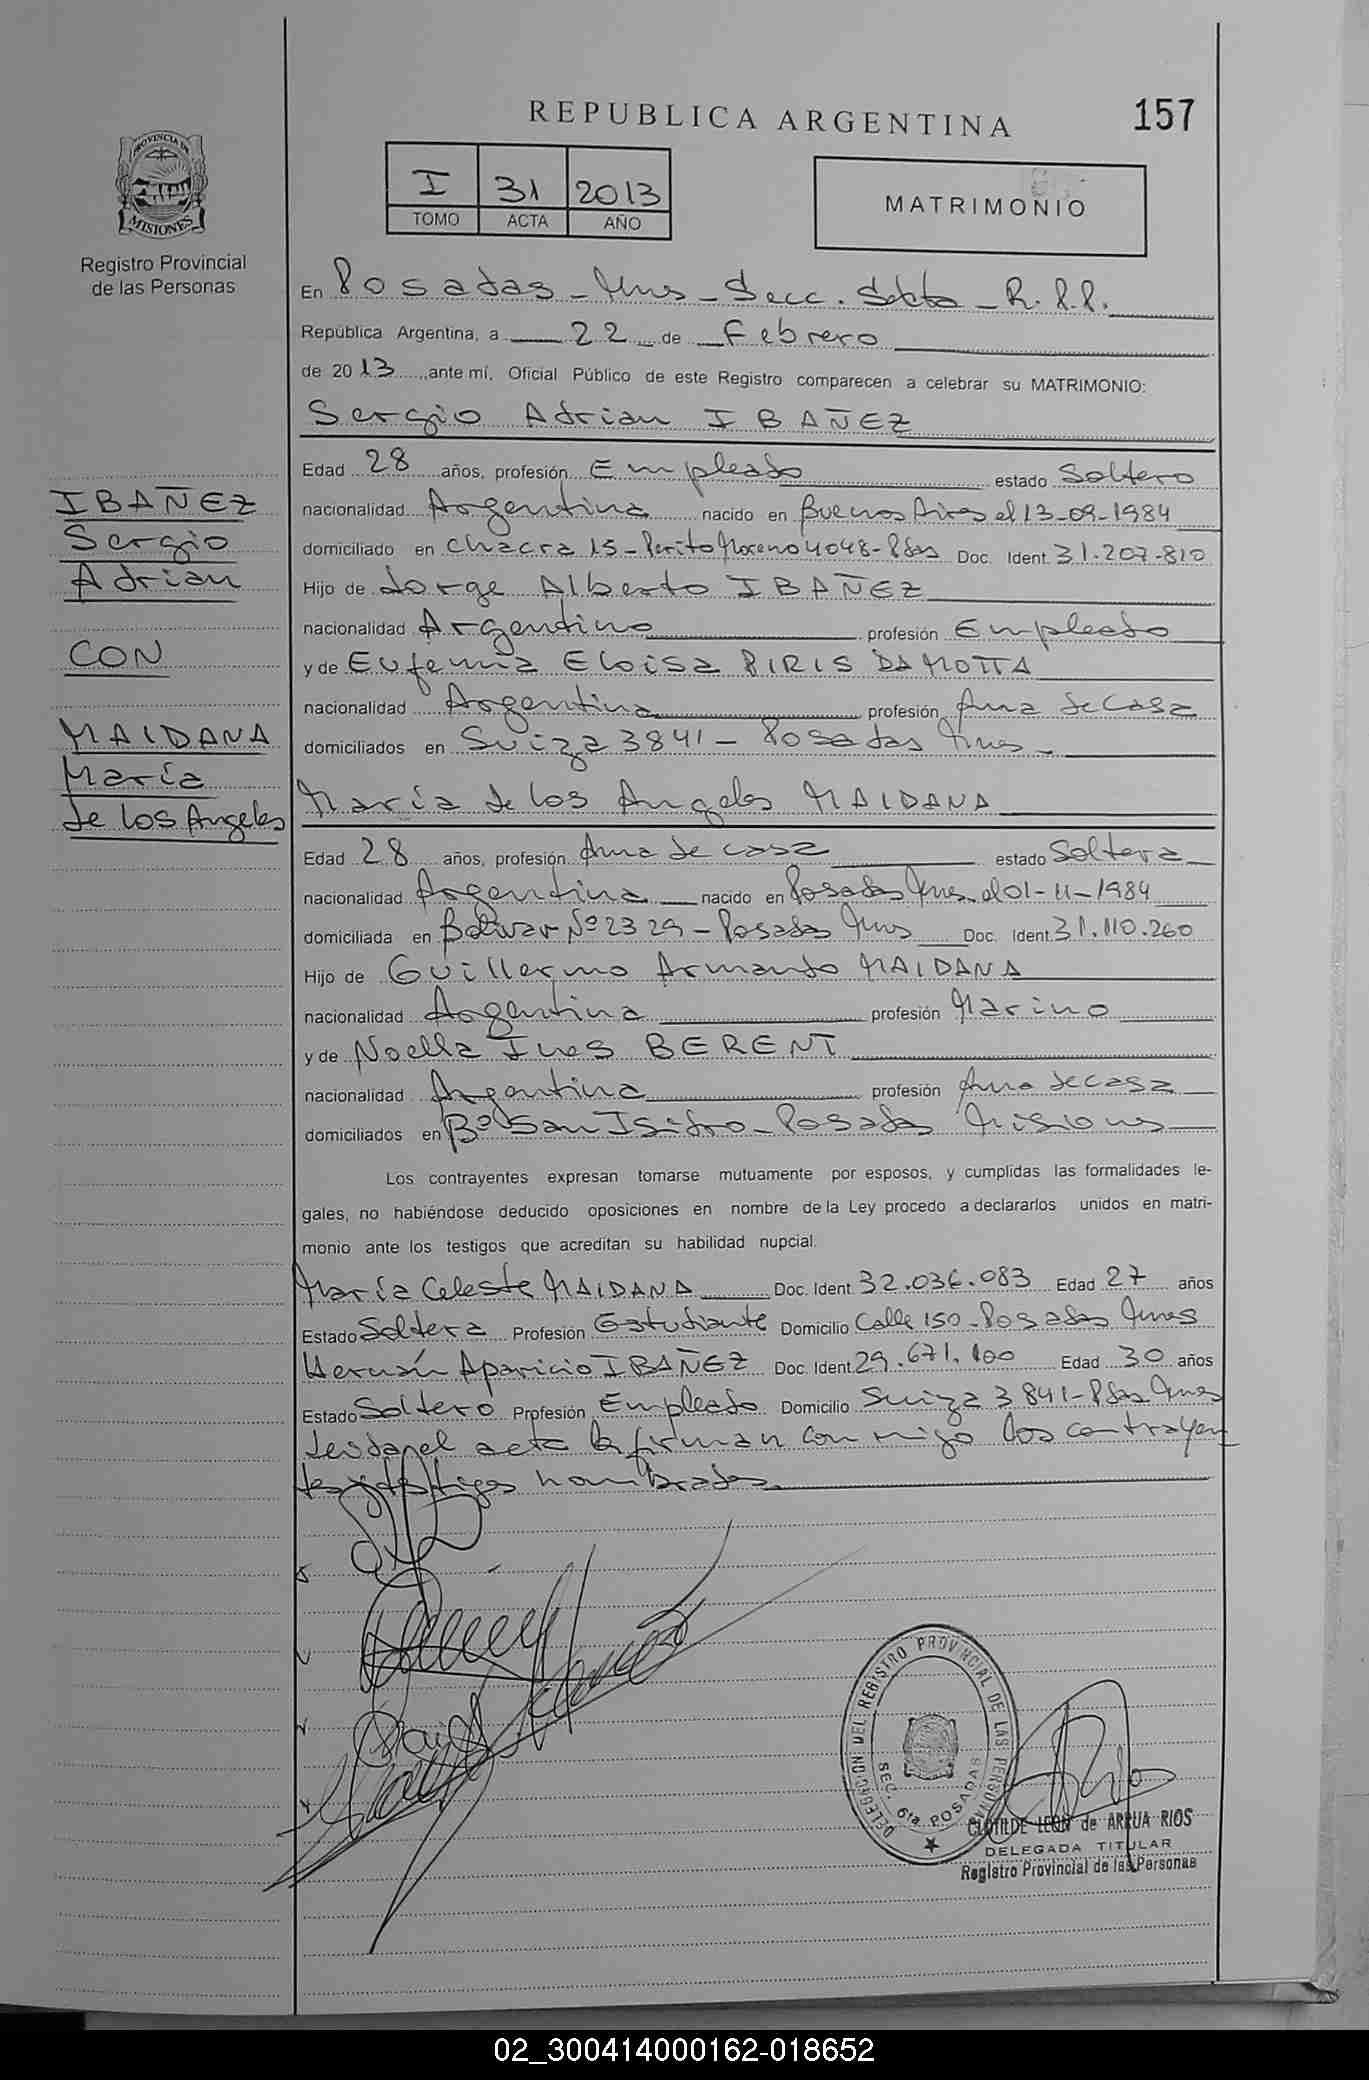 REPUBLICA ARGENTINA
157
PROVINCIA DE
MISIONES
Registro Provincial
de las Personas
I 31 2013
TOMO ACTA AÑO
MATRIMONIO
En Posadas - Mnes - Secc. Sexta - R.P.P.
República Argentina, a 22 de Febrero
de 2013 ante mí, Oficial Público de este Registro comparecen a celebrar su MATRIMONIO:
Sergio Adrian IBAÑEZ
Edad 28 años, profesión Empleado estado Soltero
nacionalidad Argentina nacido en Buenos Aires el 13-09-1984
domiciliado en Chacra 15 - Perito Moreno 4048 - Pdas Doc. Ident. 31.207.810
Hijo de Jorge Alberto IBAÑEZ
nacionalidad Argentino profesión Empleado
y de Eufemia Eloisa PIRIS DA MOTTA
nacionalidad Argentina profesión Ama de casa
domiciliados en Suiza 3841 - Posadas Mnes -
Maria de los Angeles MAIDANA
Edad 28 años, profesión Ama de casa estado Soltera
nacionalidad Argentina nacido en Posadas Mnes. el 01-11-1984
domiciliada en Bolivar Nº 2329 - Posadas Mnes Doc. Ident. 31.110.260
Hijo de Guillermo Armando MAIDANA
nacionalidad Argentina profesión Marino
y de Noella Ines BERENT
nacionalidad Argentina profesión Ama de casa
domiciliados en Bº San Isidro - Posadas Misiones
Los contrayentes expresan tomarse mutuamente por esposos, y cumplidas las formalidades le-
gales, no habiéndose deducido oposiciones en nombre de la Ley procedo a declararlos unidos en matri-
monio ante los testigos que acreditan su habilidad nupcial.
María Celeste MAIDANA Doc. Ident. 32.036.083 Edad 27 años
Estado Soltera Profesión Estudiante Domicilio Calle 150 - Posadas Mnes
Hernán Aparicio IBAÑEZ Doc. Ident. 29.671.100 Edad 30 años
Estado Soltero Profesión Empleado Domicilio Suiza 3841 - Pdas Mnes
acta la firman con migo los contrayen
tes y testigos nombrados.
IBAÑEZ
Sergio
Adrian
CON
MAIDANA
María
de los Angeles
DELEGACION DEL REGISTRO PROVINCIAL DE LAS PERSONAS
SEC. 6ta. POSADAS
CLOTILDE LEON de ARRUA RIOS
DELEGADA TITULAR
Registro Provincial de las Personas
02_300414000162-018652